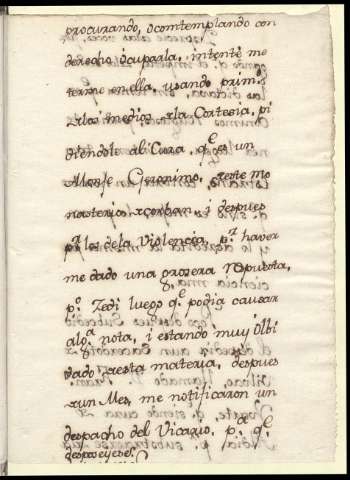 procurando, ocomtemplando con
derecho òcuparla, intentè me
terme en ella, usando primº
xlos medios xla Cortesia, pi
diendole al Cura, qᵉ es un
Monje Geronimo, xeste mo
nasterio, x i despues
pʳ los dela Violencia, pʳ haver
me dado una grosera respuesta,
pº Zedi luego qᵉ podia causar
algª nota, i estando muy Olbi
dado xesta materia, despues
xun Mes, me notificaron un
despacho del Vicario, pª qᵉ
desposeyese